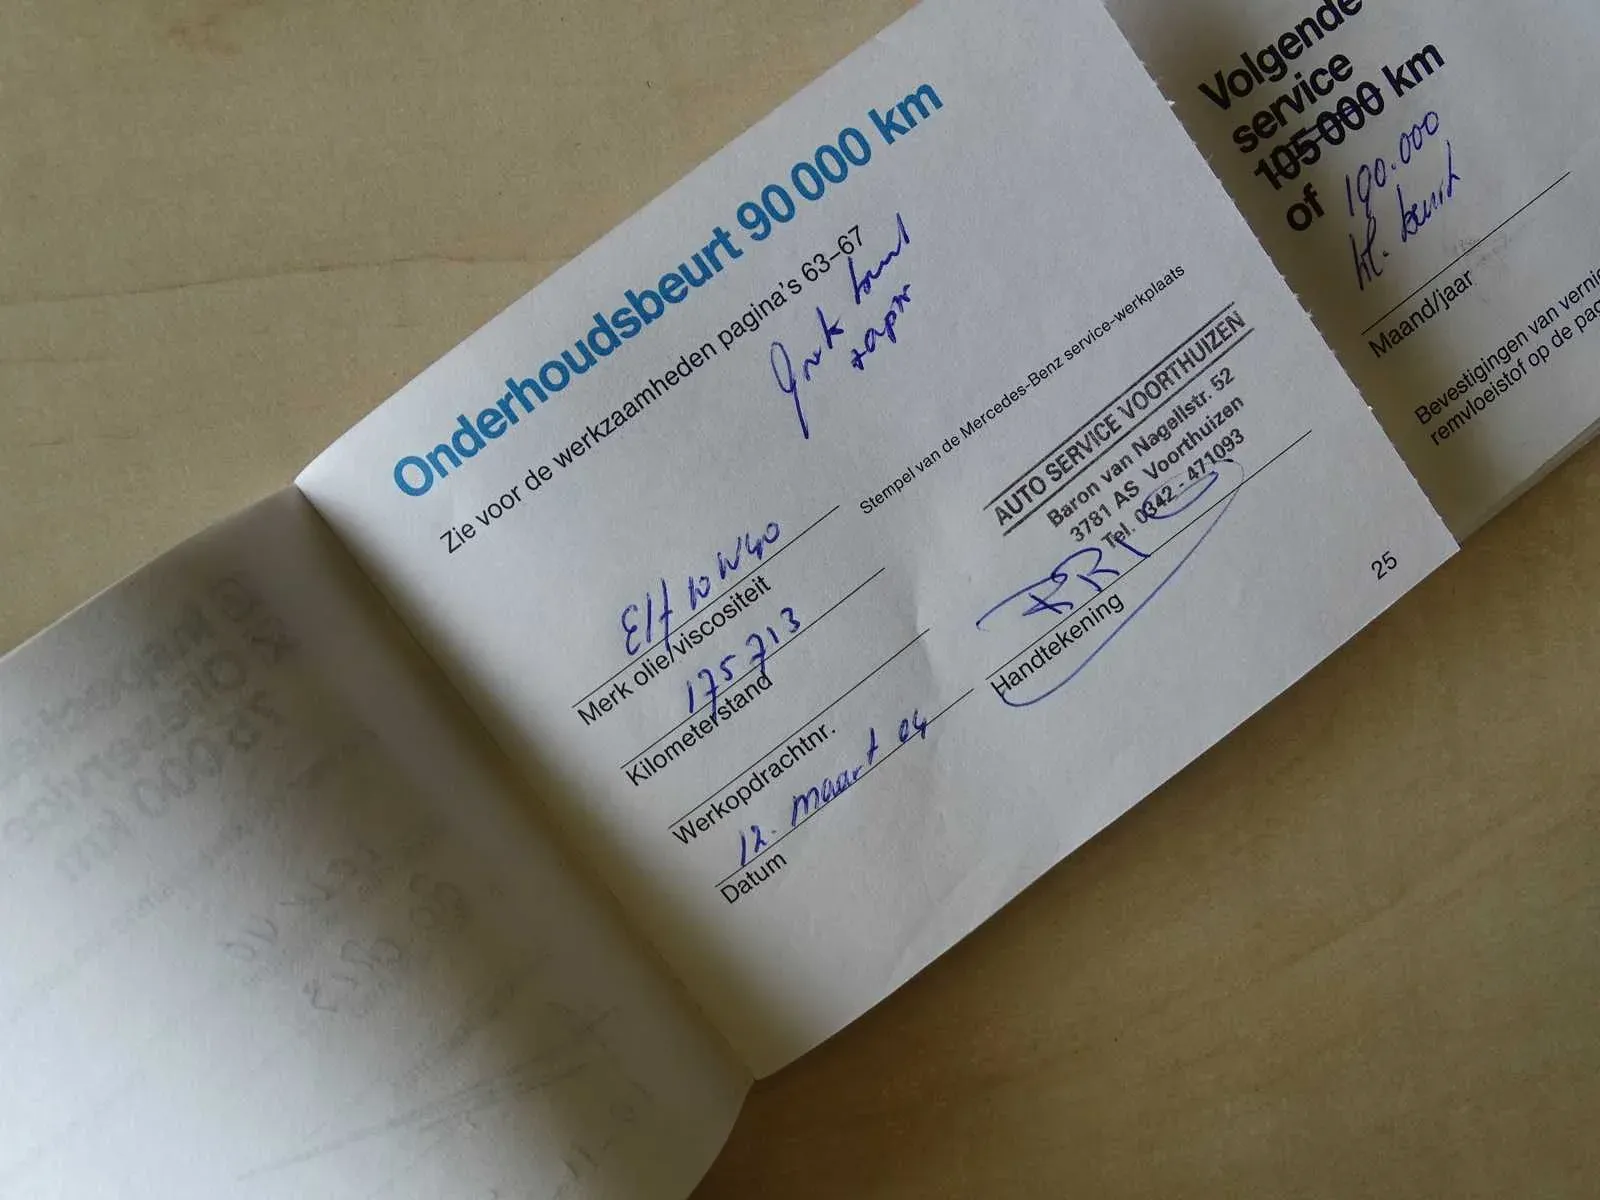 Onderhoudsbeurt 90 000 km
Zie voor de werkzaamheden pagina's 63–67
Stempel van de Mercedes-Benz service-werkplaats
AUTO SERVICE VOORTHUIZEN
Baron van Nagellstr. 52
3781 AS Voorthuizen
Tel. 0342 - 471093
Elf 10W40
Merk olie/viscositeit
175713
Kilometerstand
Werkopdrachtnr.
12. maart 04
Datum
Handtekening
25
Volgende
service
105 000 km
of
190.000
kl. beurt
Maand/jaar
Bevestigingen van
remvloeistof op de